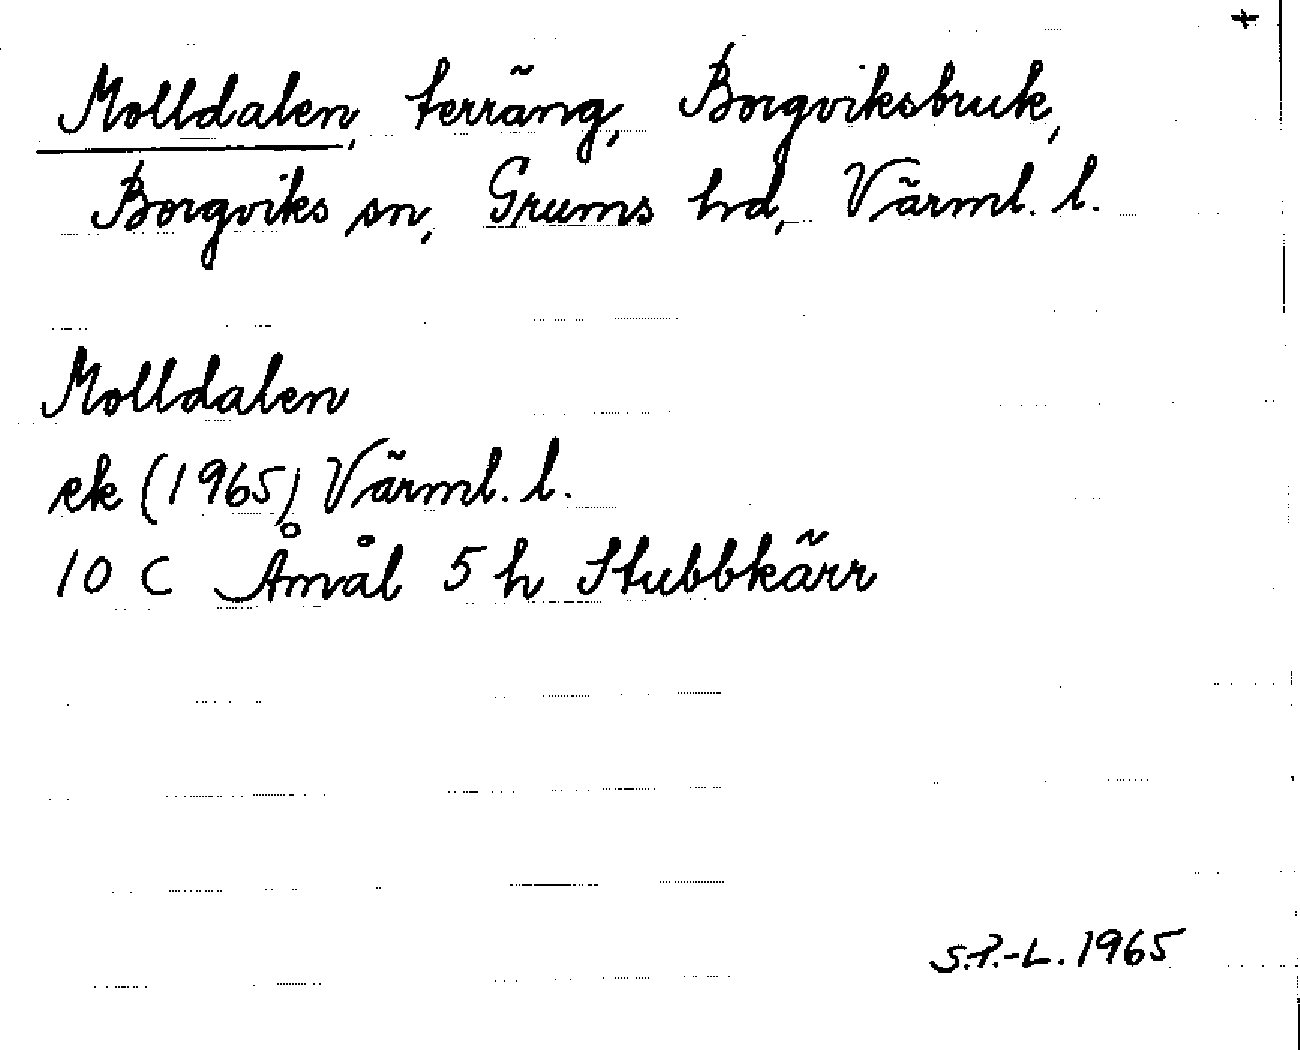 +
Molldalen, terräng, Borgviksbruk,
Borgviks sn, Grums hd, Värml. l.
Molldalen
ek (1965) Värml. l.
10 C Åmål 5 h Stubbkärr
S.P.-L. 1965